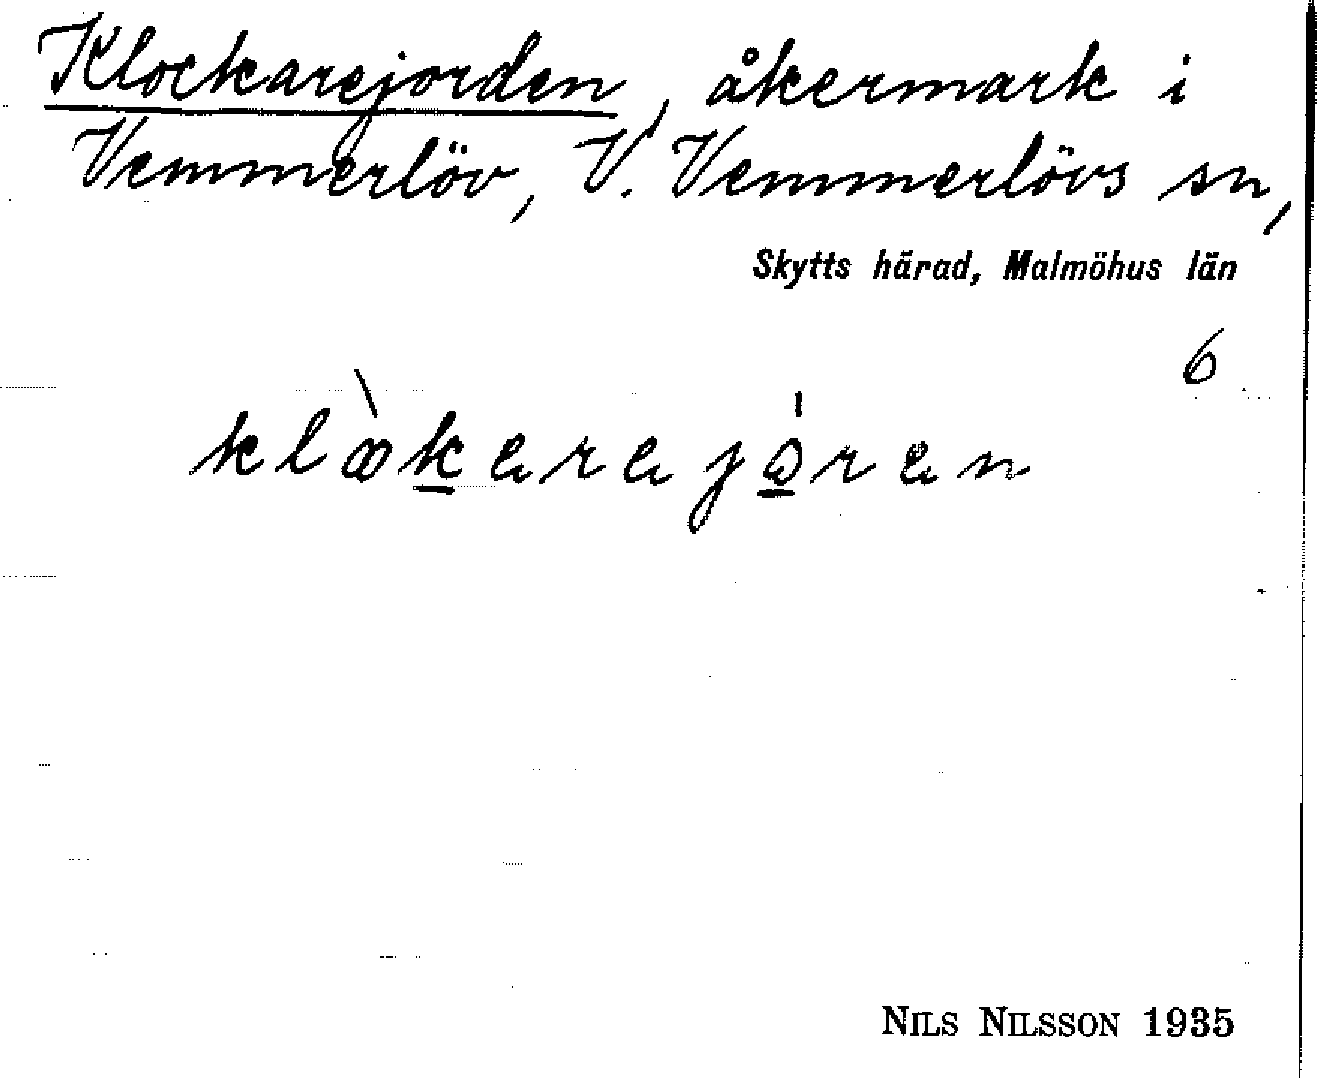 Klockarejorden, åkermark i
Vemmerlöv, V. Vemmerlövs sn,
Skytts härad, Malmöhus län
6
NILS NILSSON 1935